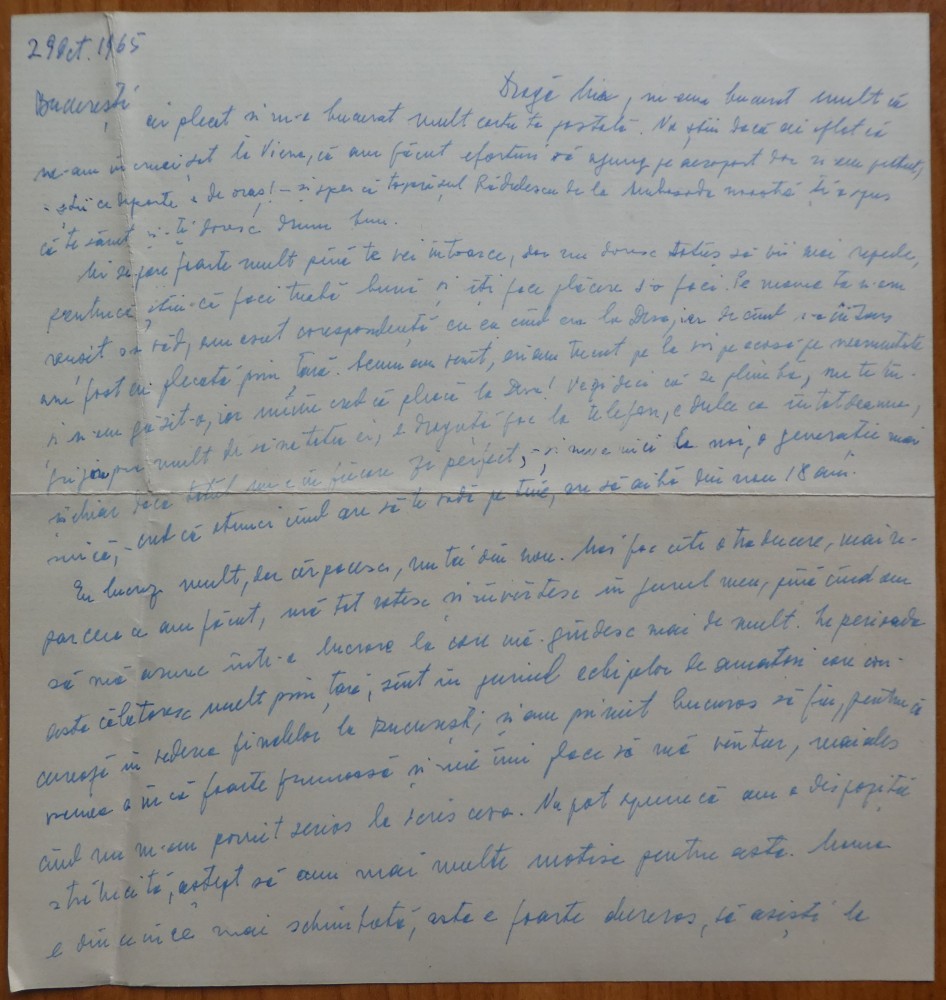 29 Oct. 1965
București
Dragă Lia, m-am bucurat mult că
ai plecat și m-a bucurat mult carta ta poștală. Nu știu dacă ai aflat că
ne-am încrucișat la Viena, că am făcut eforturi să ajung pe aeroport dar n-am putut,
știi ce departe e de oraș! – și sper că tovarășul Rădulescu de la Ambasada noastră ți-a spus
că te sărut și-ți doresc drum bun.
Mi se pare foarte mult pînă te vei întoarce, dar nu doresc totuș să vii mai repede,
pentrucă știu că faci treabă bună și îți face plăcere s-o faci. Pe mama ta n-am
reușit s-o văd, am avut corespondență cu ea cînd era la Deva, iar de cînd s-a întors
am fost eu plecată prin țară. Acum am venit, am trecut pe la voi pe acasă pe neanunțate
și n-am găsit-o, iar mîine cred că pleacă la Deva! Vezi deci că se plimbă, nu te în-
griji prea mult de sănătatea ei, e drăguță foc la telefon, e dulce ca întotdeauna,
și chiar dacă totul nu e în fiecare zi perfect, – și nu e nici la noi, o generație mai
mică, – cred că atunci cînd are să te vadă pe tine, are să aibă din nou 18 ani.
Eu lucrez mult, dar cîrpăcesc, nu dau din nou. Mai fac cîte o traducere, mai re-
parcea ce am făcut, mă tot rotesc și învîrtesc în jurul meu, pînă cînd am
să mă arunc într-o lucrare la care mă gîndesc mai de mult. In perioada
asta călătoresc mult prin țară, sînt în juriul echipelor de amatori care con-
curează în vederea finalelor la București, și am primit bucuros să fiu, pentru că
vremea e încă foarte frumoasă și mie îmi place să mă vîntur, mai ales
cînd nu m-am pornit serios la scris ceva. Nu pot spune că am o dispoziție
strălucită, aștept să am mai multe motive pentru asta. Mama
e din ce în ce mai schimbată, asta e foarte dureros, să asiști la